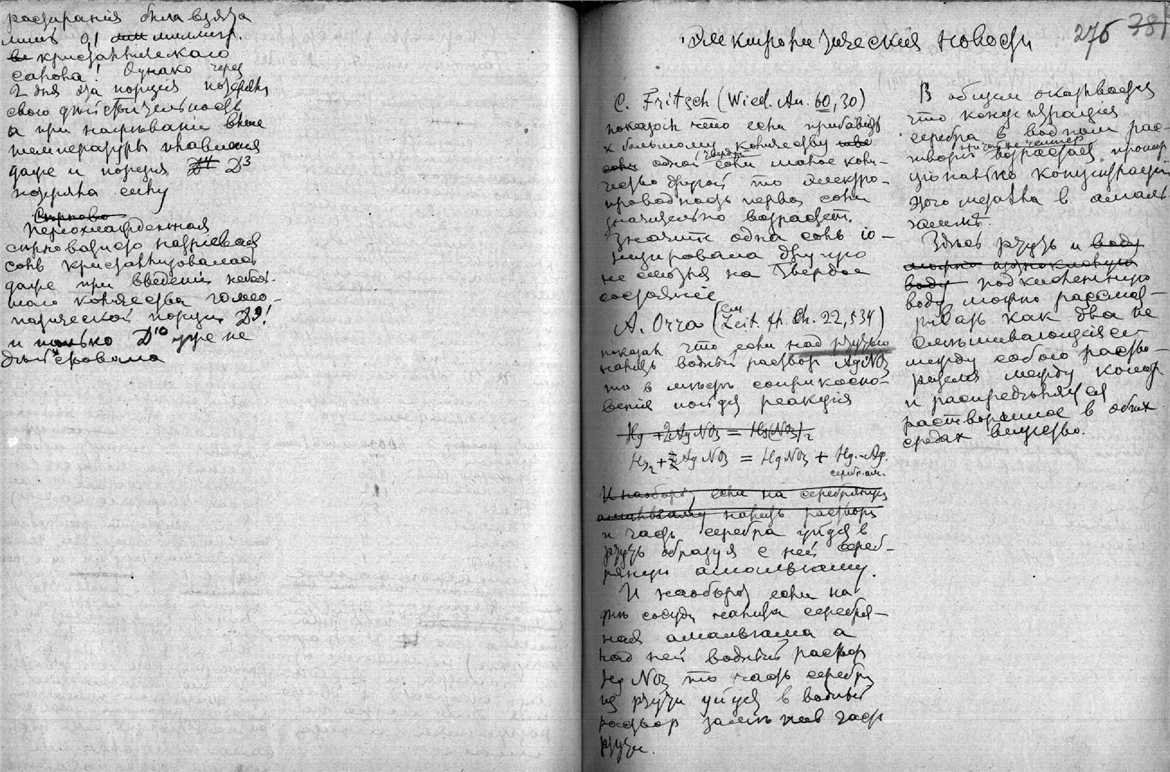 растирания была взята
лишь 0,1 миллигр.
кристаллического
салола! Однако через
2 дня эта порция потеряла
свою действительность
а при нагревании выше
температуры плавления
даже и порция D3
потеряла силу
Перенасыщенная
сернова­тисто натриевая
соль кристаллизовалась
даже при введении неболь-
шого количества гомео-
патической порции D9!
и только D10 уже не
действовала
Электрохимическия новости
276 381
C. Fritsch (Wied. An. 60, 30)
показал что если прибавить
к большому количеству
одной твердой соли малое коли-
чество другой то электро-
проводность первой соли
значительно возрастет.
Значит одна соль іо-
низировала другую
не смотря на твердое
состояніе
A. Огго (Zeit. ph. Ch. 22, 534)
показал что если над ртутью
налить водный раствор AgNO3
то в месте соприкосно-
венія пойдет реакція
Hg + 2AgNO3 = Hg(NO3)2
Hg2 + 2AgNO3 = HgNO3 + Hg.-Ag.
сереб. ам.
И наоборот, если на серебряную
амальгаму налить раствор
и часть серебра уйдет в
ртуть образуя с ней сереб-
ряную амальгаму.
И наоборот если на
дне сосуда налита серебря-
ная амальгама а
над ней водный раствор
HgNO3 то часть серебра
из ртути уйдет в водный
раствор заместив часть
ртути.
В общем оказывается
что концентрація
серебра в водном рас-
творе возрастает пропор-
ціонально концентраціи
этого металла в амаль-
гаме.
Здесь ртуть и воду
подкисленную
воду можно рассмат-
ривать как два не
смешивающіеся
между собою раство-
рителя между которы
и распределяется
растворенное в обеих
средах вещество.